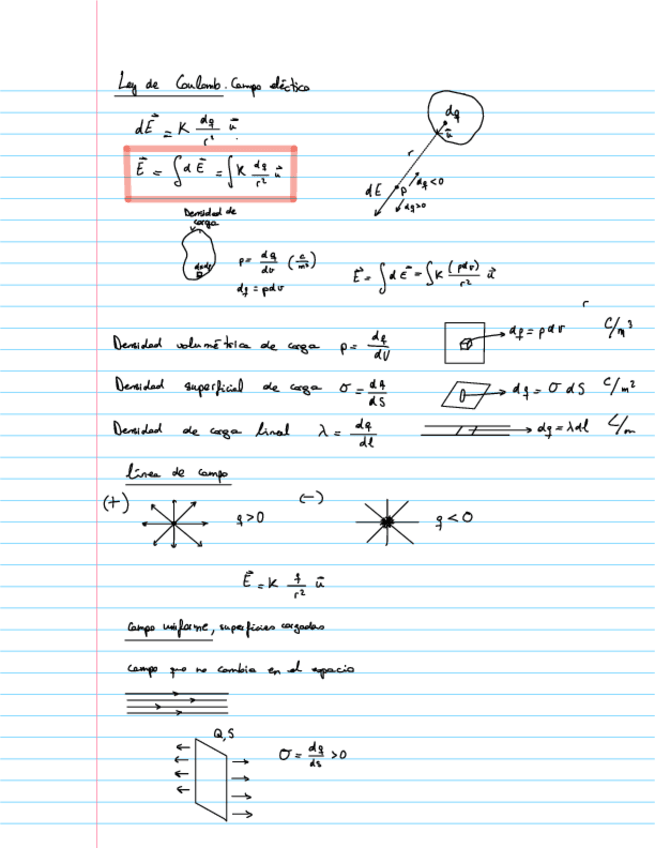 Ley de Coulomb. Campo eléctrico
dE⃗ = K dq/r² u⃗
dq
u⃗
r
E⃗ = ∫dE⃗ = ∫K dq/r² u⃗
dE P dq<0
dq>0
Densidad de carga
ρ = dq/dv (C/m³)
dq = ρdv
E⃗ = ∫dE⃗ = ∫K (ρdv)/r² u⃗
r
Densidad volumétrica de carga ρ = dq/dV dq = ρdv C/m³
Densidad superficial de carga σ = dq/dS dq = σ dS C/m²
Densidad de carga lineal λ = dq/dl dq = λdl C/m
línea de campo
(+) q>0 (-) q<0
E⃗ = K q/r² u⃗
Campo uniforme, superficies cargadas
Campo que no cambia en el espacio
Q,S
σ = dq/ds >0